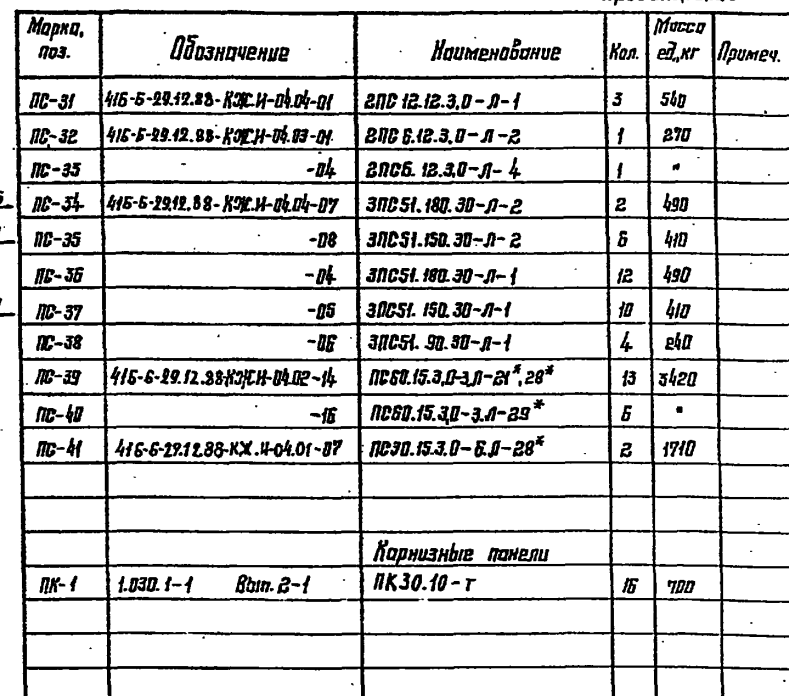 Марка, поз. Обозначение Наименование Кол. Масса ед,кг Примеч.
ПС-31 416-6-29.12.88-КЖ.И-04.04-01 2ПС 12.12.3,0-Л-1 3 540
ПС-32 416-6-29.12.88-КЖ.И-04.03-01 2ПС 6.12.3,0-Л-2 1 270
ПС-33 -04 2ПС6.12.3,0-Л-4 1 "
ПС-34 416-6-29.12.88-КЖ.И-04.04-07 3ПС51.180.30-Л-2 2 490
ПС-35 -08 3ПС51.150.30-Л-2 6 410
ПС-36 -04 3ПС51.180.30-Л-1 12 490
ПС-37 -05 3ПС51.150.30-Л-1 10 410
ПС-38 -06 3ПС51.90.30-Л-1 4 240
ПС-39 416-6-29.12.88-КЖ.И-04.02-14 ПС60.15.3,0-3.Л-21*,28* 13 3420
ПС-40 -16 ПС60.15.3,0-3.Л-29* 6 "
ПС-41 416-6-29.12.88-КЖ.И-04.01-07 ПС30.15.3.0-6.Л-28* 2 1710
Карнизные панели
ПК-1 1.030.1-1 Вып. 2-1 ПК30.10-т 16 700